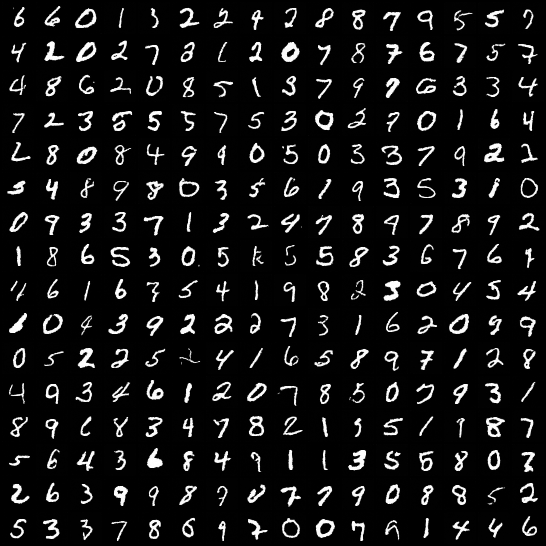 6 6 0 1 3 2 2 9 2 8 8 7 9 5 5 7
4 2 0 2 7 3 6 2 0 7 8 7 6 7 5 7
4 8 6 2 0 8 5 1 3 7 9 9 6 3 3 4
7 2 3 5 5 5 7 5 3 0 2 7 0 1 6 4
2 8 0 8 4 9 9 0 5 0 3 3 7 9 2 2
3 4 8 9 8 0 3 5 6 1 9 3 5 3 1 0
0 9 3 3 7 1 3 2 4 7 8 9 7 8 9 2
1 8 6 5 3 0 5 5 5 8 3 6 7 6 9
4 6 1 6 7 5 4 1 9 8 2 3 0 4 5 4
1 0 4 3 9 2 2 2 7 3 1 6 2 0 9 9
0 5 2 2 5 2 4 1 6 5 8 9 7 1 2 8
4 9 3 4 6 1 2 0 7 8 5 0 7 9 3 1
8 9 6 8 3 4 7 8 2 1 9 5 1 9 8 7
5 6 4 3 6 8 4 9 1 1 3 5 5 8 0 7
2 6 3 9 9 8 7 0 7 7 9 0 8 8 5 2
5 3 3 7 8 6 9 2 0 0 7 9 1 4 4 6